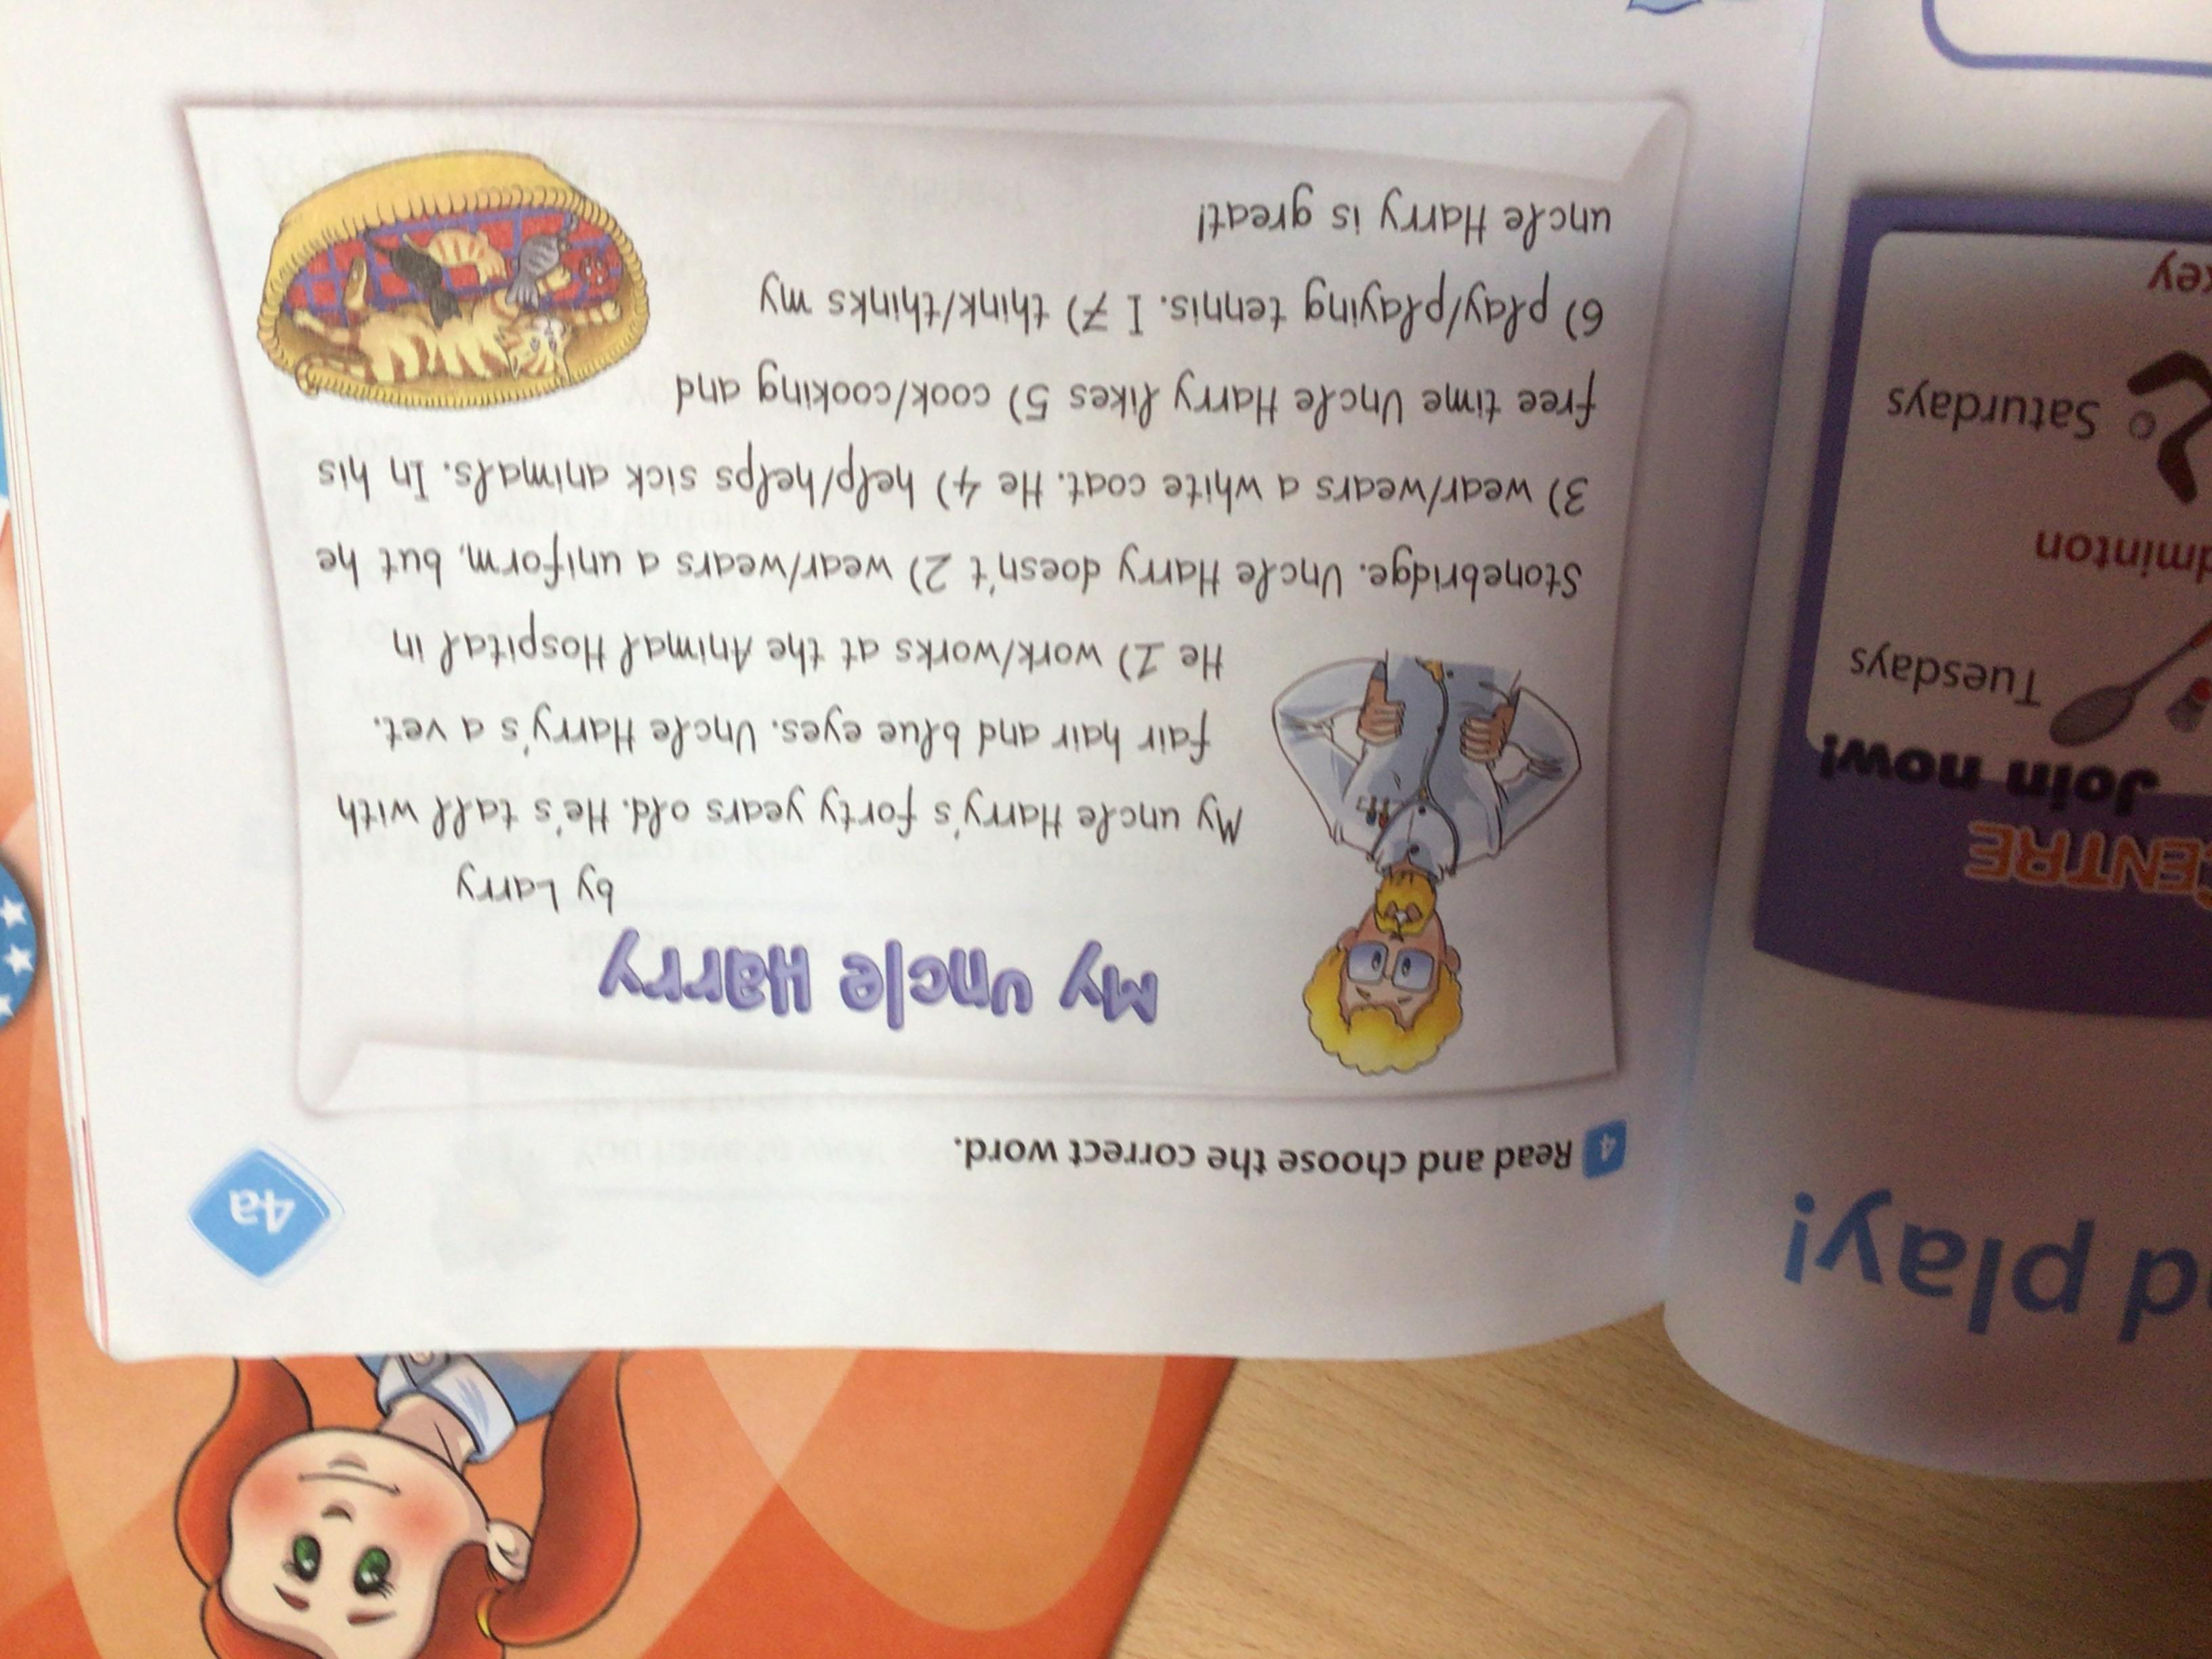 d play!
CENTRE
Join now!
Tuesdays
dminton
Saturdays
key
4a
4 Read and choose the correct word.
My Uncle Harry
by Larry
My uncle Harry's forty years old. He's tall with
fair hair and blue eyes. Uncle Harry's a vet.
He 1) work/works at the Animal Hospital in
Stonebridge. Uncle Harry doesn't 2) wear/wears a uniform, but he
3) wear/wears a white coat. He 4) help/helps sick animals. In his
free time Uncle Harry likes 5) cook/cooking and
6) play/playing tennis. I 7) think/thinks my
uncle Harry is great!